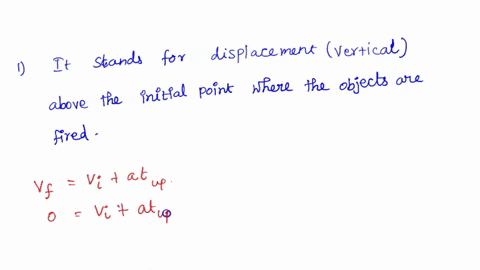 1) It stands for displacement (vertical)
above the initial point where the objects are
fired.
Vf = Vi + at up.
0 = Vi + at up